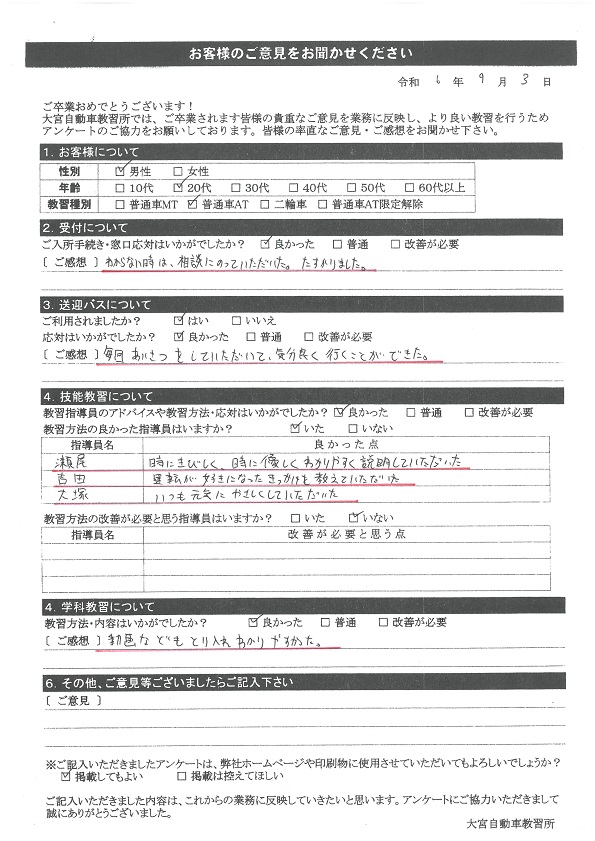 お客様のご意見をお聞かせください
令和 6 年 9 月 3 日
ご卒業おめでとうございます！
大宮自動車教習所では、ご卒業されます皆様の貴重なご意見を業務に反映し、より良い教習を行うため
アンケートのご協力をお願いしております。皆様の率直なご意見・ご感想をお聞かせ下さい。
1. お客様について
性別 ☑男性 □女性
年齢 □10代 ☑20代 □30代 □40代 □50代 □60代以上
教習種別 □普通車MT ☑普通車AT □二輪車 □普通車AT限定解除
2. 受付について
ご入所手続き・窓口応対はいかがでしたか？ ☑良かった □普通 □改善が必要
[ ご感想 ] わからない時は、相談にのっていただいた。たすかりました。
3. 送迎バスについて
ご利用されましたか？ ☑はい □いいえ
応対はいかがでしたか？ ☑良かった □普通 □改善が必要
[ ご感想 ] 毎回あいさつをしていただいて、気分良く行くことができた。
4. 技能教習について
教習指導員のアドバイスや教習方法・応対はいかがでしたか？ ☑良かった □普通 □改善が必要
教習方法の良かった指導員はいますか？ ☑いた □いない
指導員名 良かった点
瀬尾 時にきびしく、時に優しくわかりやすく説明していただいた
吉田 運転が好きになったきっかけを教えていただいた
大塚 いつも元気にやさしくしていただいた
教習方法の改善が必要と思う指導員はいますか？ □いた ☑いない
指導員名 改善が必要と思う点
4. 学科教習について
教習方法・内容はいかがでしたか？ ☑良かった □普通 □改善が必要
[ ご感想 ] 動画などもとり入れわかりやすかった。
6. その他、ご意見等ございましたらご記入下さい
[ ご意見 ]
※ご記入いただきましたアンケートは、弊社ホームページや印刷物に使用させていただいてもよろしいでしょうか？
☑掲載してもよい □掲載は控えてほしい
ご記入いただきました内容は、これからの業務に反映していきたいと思います。アンケートにご協力いただきまして
誠にありがとうございました。
大宮自動車教習所